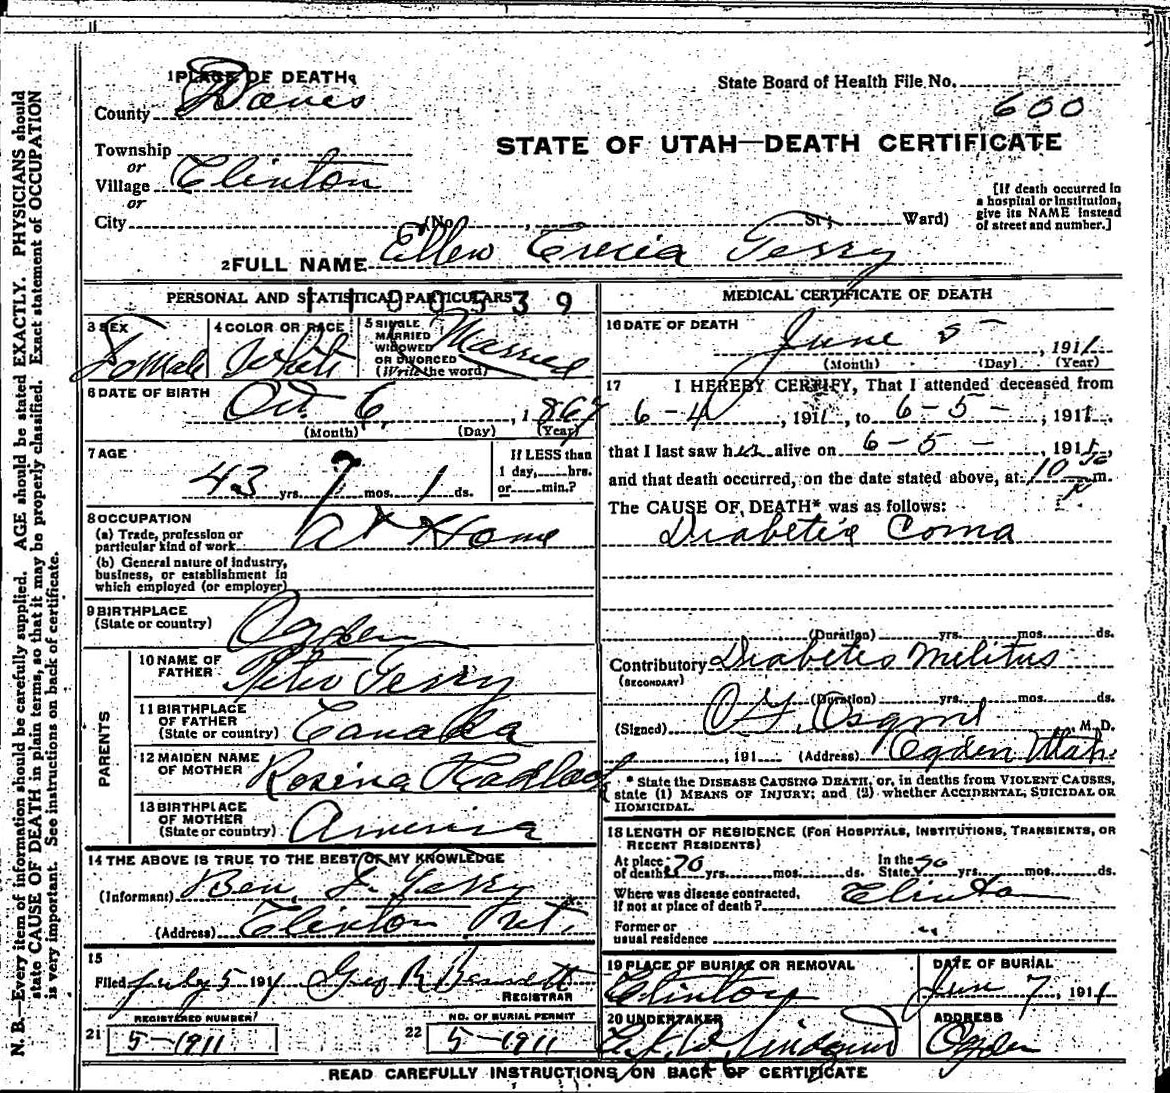 1 PLACE OF DEATH
County Daves
State Board of Health File No. 600
STATE OF UTAH—DEATH CERTIFICATE
Township
or
Village Clinton
or
City (No. St.; Ward)
[If death occurred in
a hospital or institution,
give its NAME instead
of street and number.]
2 FULL NAME Ellen Terry
PERSONAL AND STATISTICAL PARTICULARS
1100539
3 SEX Female
4 COLOR OR RACE White
5 SINGLE
MARRIED
WIDOWED
OR DIVORCED
(Write the word) Married
6 DATE OF BIRTH Oct. 6, 1867
(Month) (Day) (Year)
7 AGE
43 yrs. 7 mos. 1 ds.
If LESS than
1 day, hrs.
or min.?
8 OCCUPATION
(a) Trade, profession or
particular kind of work At Home
(b) General nature of industry,
business, or establishment in
which employed (or employer)
9 BIRTHPLACE
(State or country) Ogden
PARENTS
10 NAME OF
FATHER Terry
11 BIRTHPLACE
OF FATHER
(State or country) Canada
12 MAIDEN NAME
OF MOTHER Rosina Hadlock
13 BIRTHPLACE
OF MOTHER
(State or country) America
14 THE ABOVE IS TRUE TO THE BEST OF MY KNOWLEDGE
(Informant) Ben. Terry
(Address) Clinton
15
Filed July 5 191 Geo R Bassett
REGISTRAR
REGISTERED NUMBER
21 5-1911
NO. OF BURIAL PERMIT
22 5-1911
MEDICAL CERTIFICATE OF DEATH
16 DATE OF DEATH
June 5 , 1911
(Month) (Day) (Year)
17 I HEREBY CERTIFY, That I attended deceased from
6-4 , 1911, to 6-5- , 1911,
that I last saw her alive on 6-5- , 1911,
and that death occurred, on the date stated above, at 10 m.
The CAUSE OF DEATH* was as follows:
Diabetis Coma
(Duration) yrs. mos. ds.
Contributory Diabetis Melitus
(SECONDARY)
(Duration) yrs. mos. ds.
(Signed) M. D.
, 191 (Address) Ogden Utah.
* State the DISEASE CAUSING DEATH, or, in deaths from VIOLENT CAUSES,
state (1) MEANS OF INJURY; and (2) whether ACCIDENTAL, SUICIDAL OR
HOMICIDAL.
18 LENGTH OF RESIDENCE (FOR HOSPITALS, INSTITUTIONS, TRANSIENTS, OR
RECENT RESIDENTS)
At place
of death yrs. mos. ds.
In the
State yrs. mos. ds.
Where was disease contracted,
if not at place of death? Clinton
Former or
usual residence "
19 PLACE OF BURIAL OR REMOVAL
Clinton
DATE OF BURIAL
Jun 7, 1911
20 UNDERTAKER
ADDRESS
Ogden
READ CAREFULLY INSTRUCTIONS ON BACK OF CERTIFICATE
N. B.—Every item of information should be carefully supplied. AGE should be stated EXACTLY. PHYSICIANS should
state CAUSE OF DEATH in plain terms, so that it may be properly classified. Exact statement of OCCUPATION
is very important. See instructions on back of certificate.